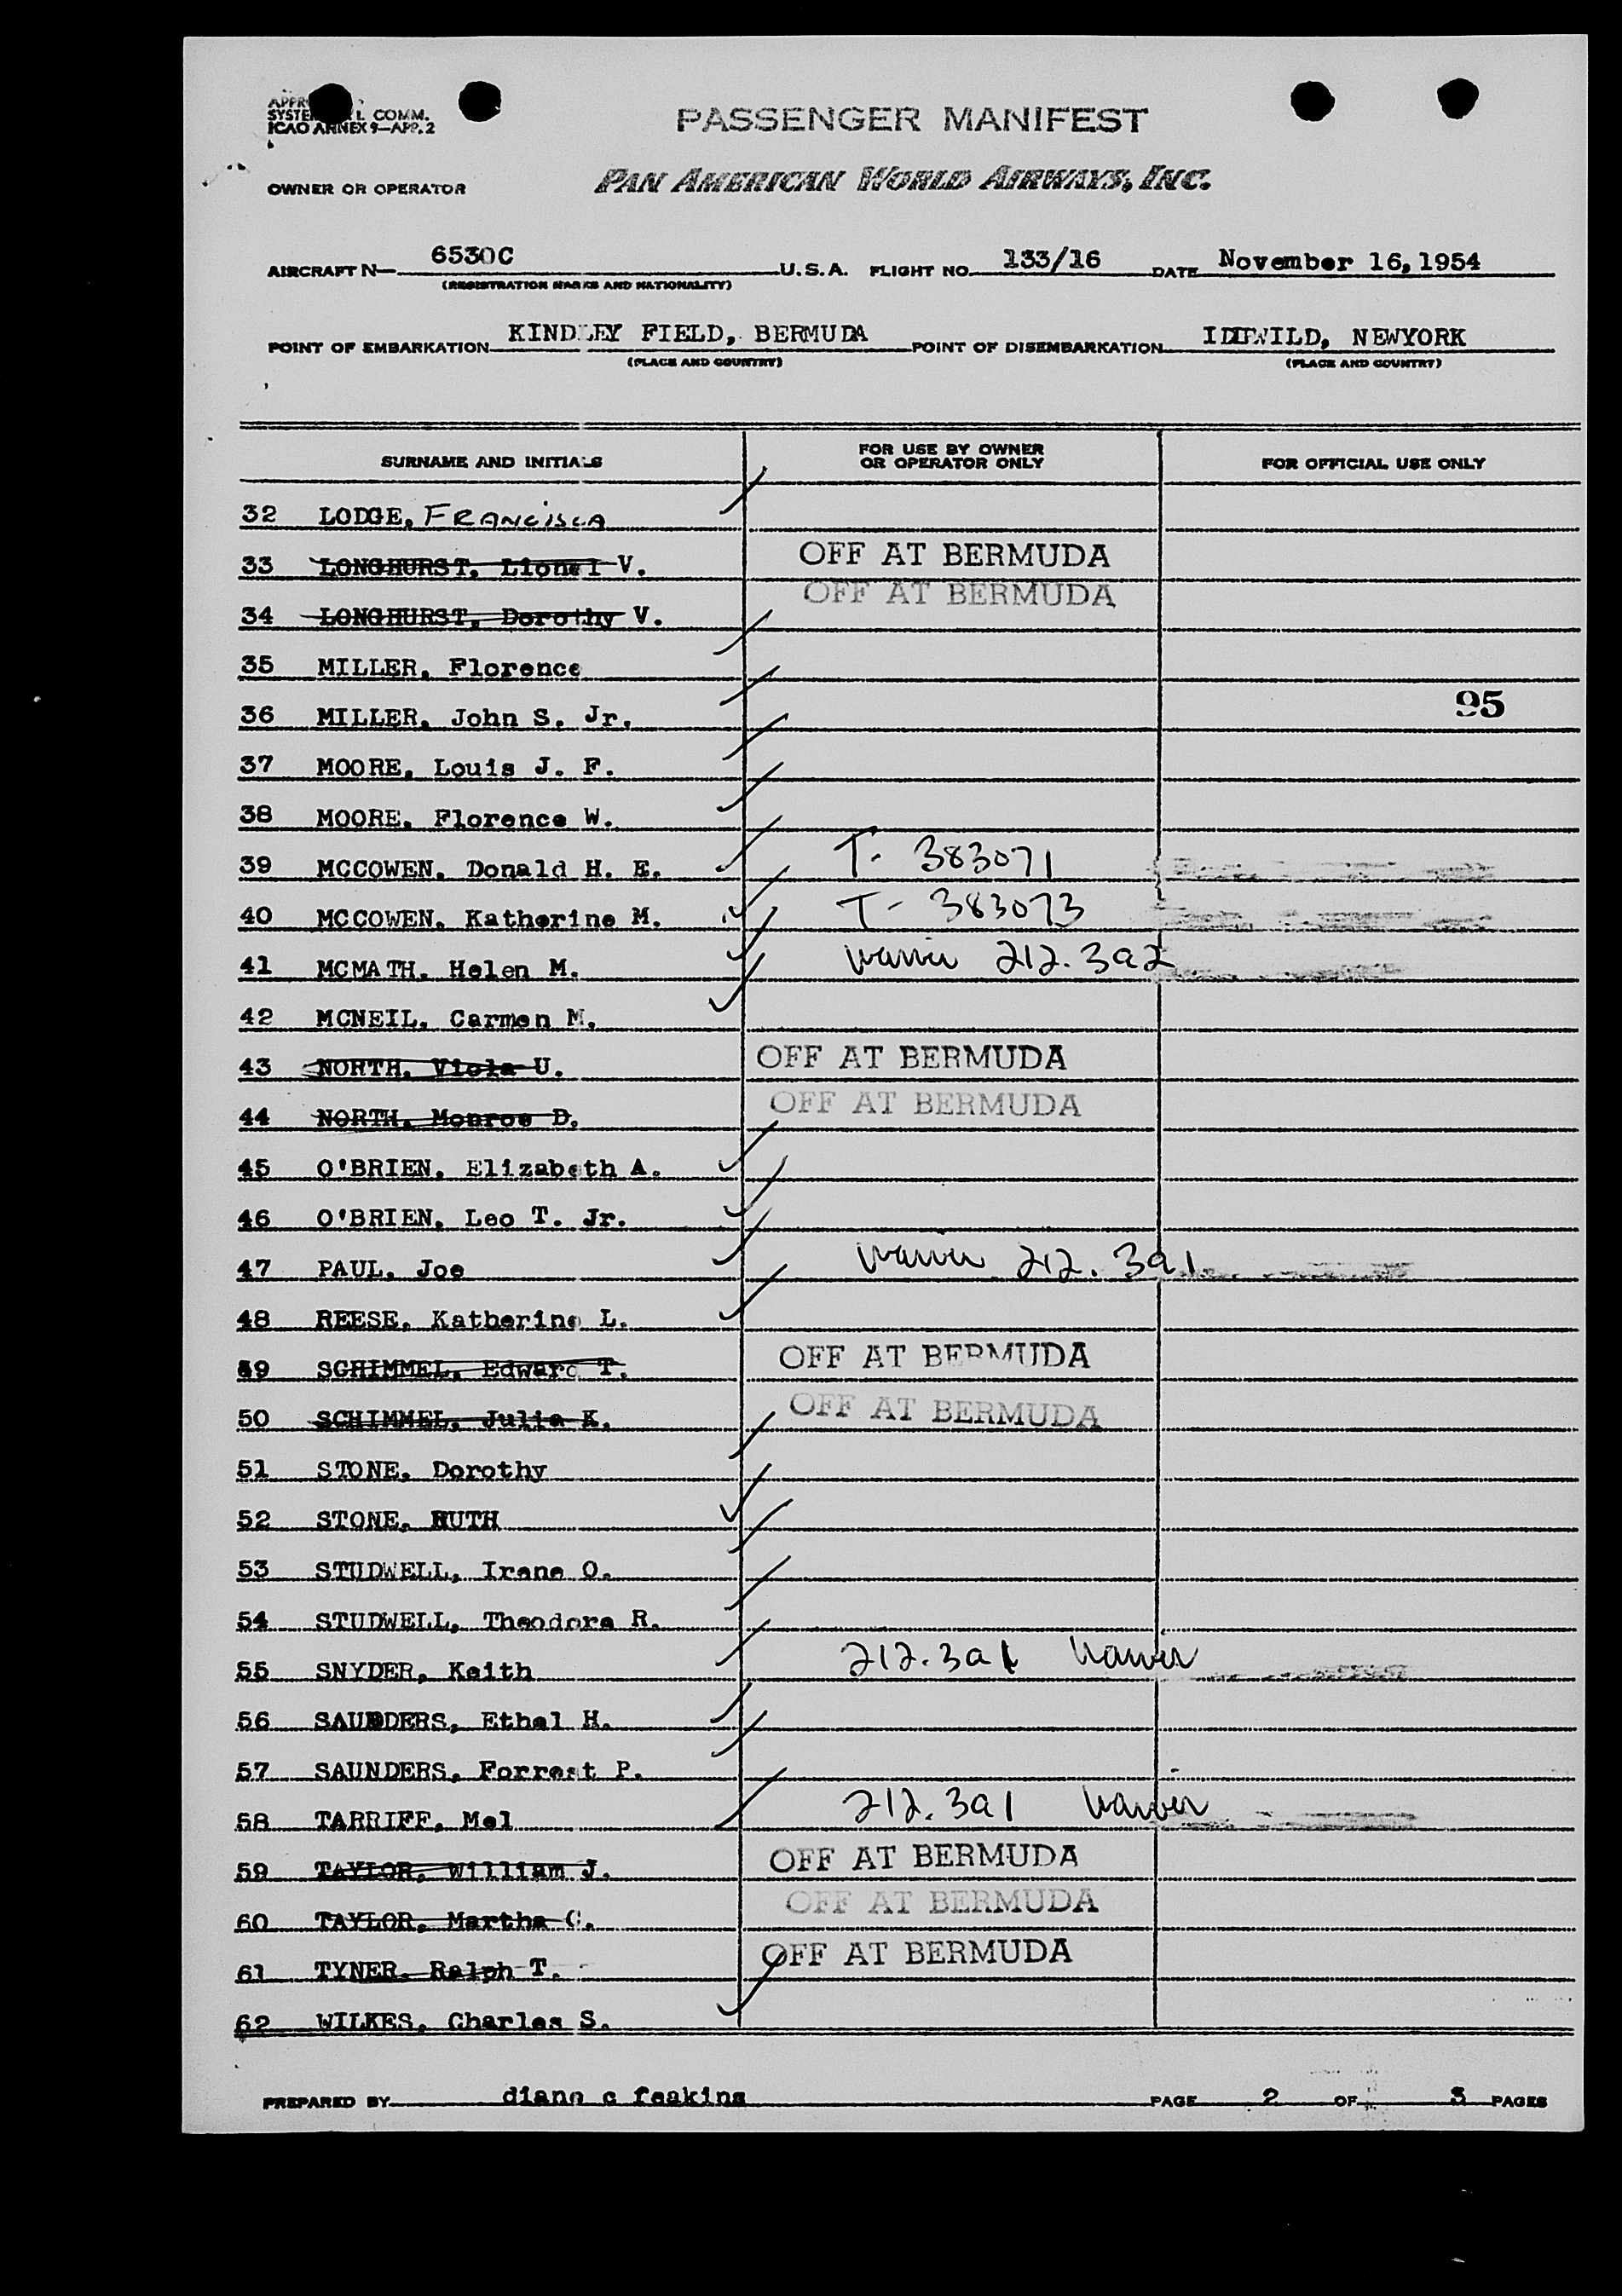 SYSTE L COMM.
ICAO ANNEX 9—APP. 2
PASSENGER MANIFEST
OWNER OR OPERATOR PAN AMERICAN WORLD AIRWAYS, INC.
AIRCRAFT N— 6530C U.S.A. FLIGHT NO. 133/16 DATE November 16, 1954
(REGISTRATION MARKS AND NATIONALITY)
POINT OF EMBARKATION KINDLEY FIELD, BERMUDA POINT OF DISEMBARKATION IDLEWILD, NEWYORK
(PLACE AND COUNTRY) (PLACE AND COUNTRY)
SURNAME AND INITIALS FOR USE BY OWNER OR OPERATOR ONLY FOR OFFICIAL USE ONLY
32 LODGE, FRANCISCA
33 LONGHURST, Lionel V. OFF AT BERMUDA
34 LONGHURST, Dorothy V. OFF AT BERMUDA
35 MILLER, Florence
36 MILLER, John S. Jr. 95
37 MOORE, Louis J. F.
38 MOORE, Florence W.
39 MCCOWEN, Donald H. E. T- 383071
40 MCCOWEN, Katherine M. T- 383073
41 MCMATH, Helen M. waiver 212.3a2
42 MCNEIL, Carmen M.
43 NORTH, Viola U. OFF AT BERMUDA
44 NORTH, Monroe D. OFF AT BERMUDA
45 O'BRIEN, Elizabeth A.
46 O'BRIEN, Leo T. Jr.
47 PAUL, Joe waiver 212.3a1
48 REESE, Katherine L.
49 SCHIMMEL, Edward T. OFF AT BERMUDA
50 SCHIMMEL, Julia K. OFF AT BERMUDA
51 STONE, Dorothy
52 STONE, RUTH
53 STUDWELL, Irene O.
54 STUDWELL, Theodore R.
55 SNYDER, Keith 212.3a1 waiver
56 SAUNDERS, Ethel H.
57 SAUNDERS, Forrest P.
58 TARRIFF, Mel 212.3a1 waiver
59 TAYLOR, William J. OFF AT BERMUDA
60 TAYLOR, Martha C. OFF AT BERMUDA
61 TYNER, Ralph T. OFF AT BERMUDA
62 WILKES, Charles S.
PREPARED BY diane c feakins PAGE 2 OF 3 PAGES